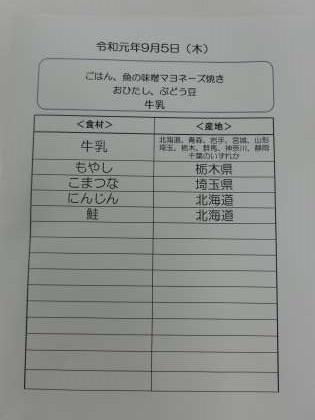 令和元年9月5日（木）
ごはん、魚の味噌マヨネーズ焼き
おひたし、ぶどう豆
牛乳
＜食材＞ ＜産地＞
牛乳 北海道、青森、岩手、宮城、山形
埼玉、栃木、群馬、神奈川、静岡
千葉のいずれか
もやし 栃木県
こまつな 埼玉県
にんじん 北海道
鮭 北海道